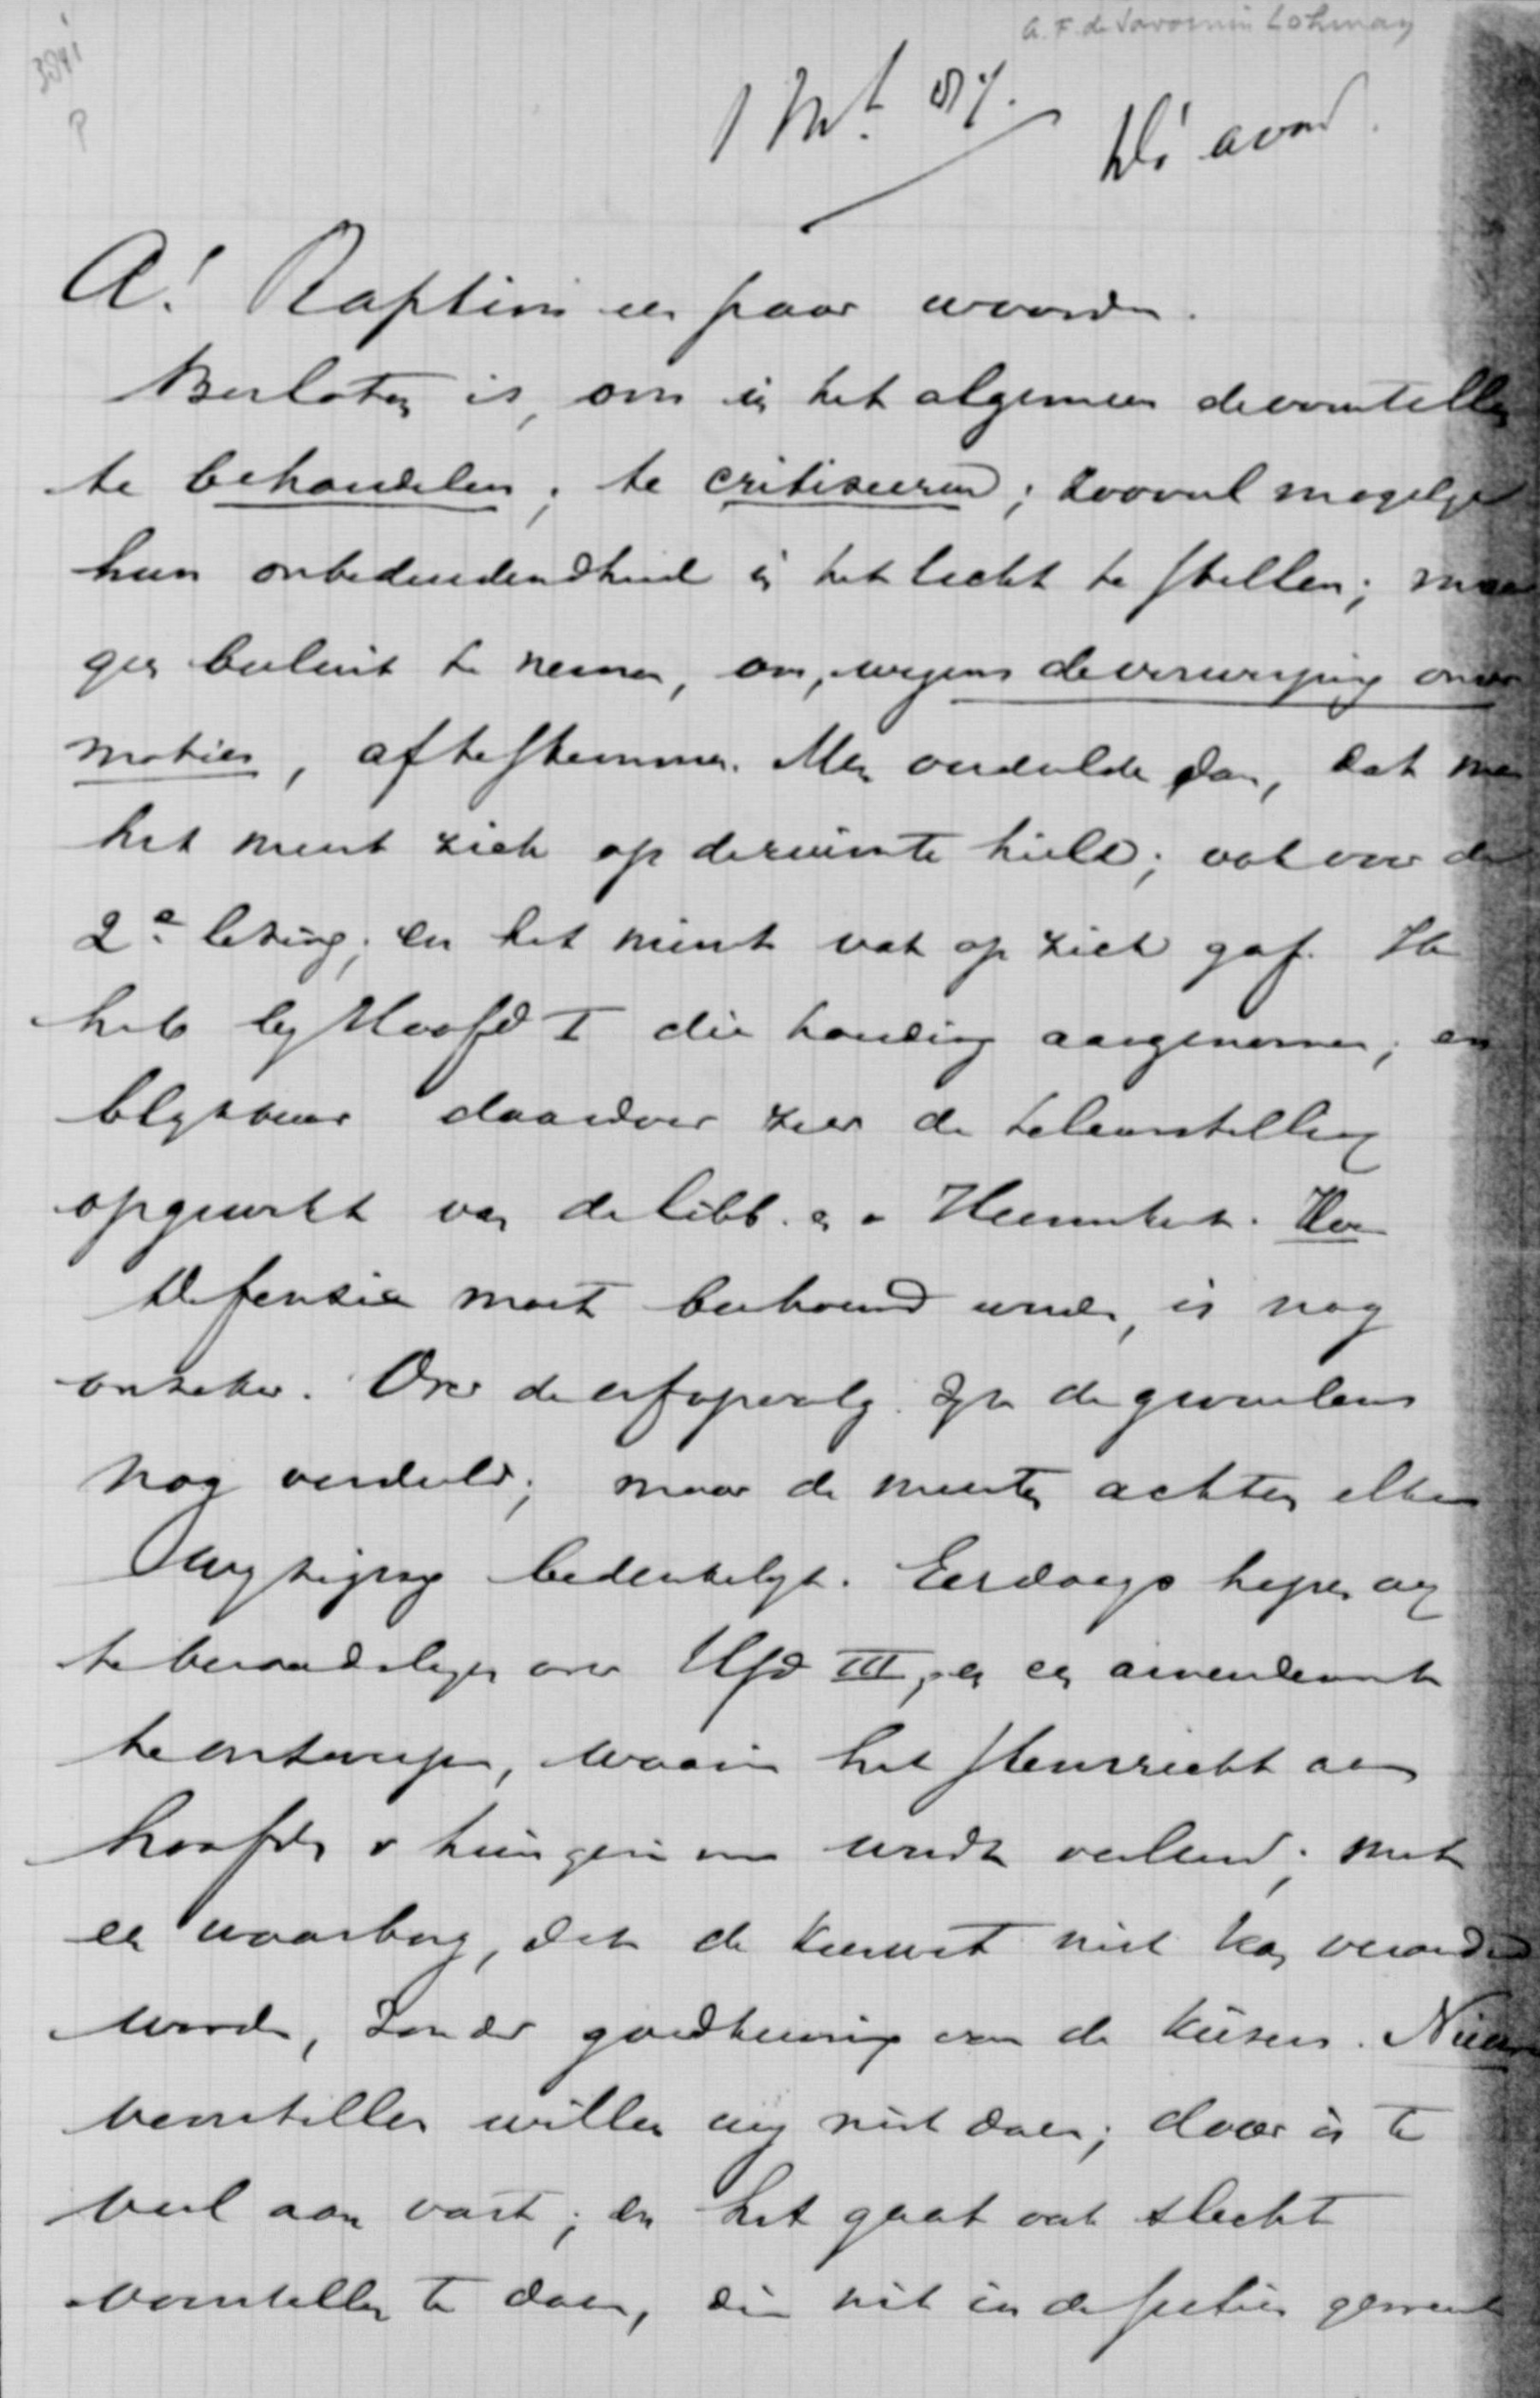 A. F. de Savornin Lohman
3841
P
1 Mrt 87.
Di avond.
A! Raptim een paar woorden.
Besloten is, om in het algemeen de voorstellen
te behandelen; te critiseeren; zooveel mogelijk
hun onbeduidendheid in het licht te stellen; maar
geen besluit te nemen, om, wegens de verwerping onzer
moties, af te stemmen. Men oordeelde dan, dat men
het meest zich op de ruimte hield; ook voor de
2e lezing; en het minst vat op zich gaf. Ik
heb bij Hoofd I die houding aangenomen; en
blijkbaar daardoor zeer de teleurstelling
opgewekt van de libb. en Heemskerk. Hoe
Defensie moet beschouwd worden, is nog
onzeker. Over de erfopvolg. zijn de gevoelens
nog verdeeld; maar de meesten achten elke
wijziging bedenkelijk. Eerdaags hopen wij
te beraadslagen over Hfd III, en een amendement
te ontwerpen, waarin het stemrecht aan
hoofden v huisgezinnen wordt verleend; met
een waarborg, dat de kieswet niet kan veranderd
worden, zonder goedkeuring van de kiezers. Nieuwe
voorstellen willen wij niet doen; daar is te
veel aan vast; en het gaat ook slecht
voorstellen te doen, die niet in de secties gemeld